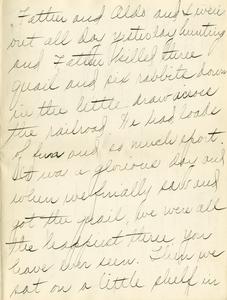 "Father and Aldo and I were
out all day yesterday hunting
and Father killed three
quail and six rabbits down
in the little draw across
the railroad. He had loads
of fun and so much sport.
It was a glorious day and
when we finally saw and
got the quail, we were all
the happiest three you
have ever seen. Then we
sat on a little shelf in